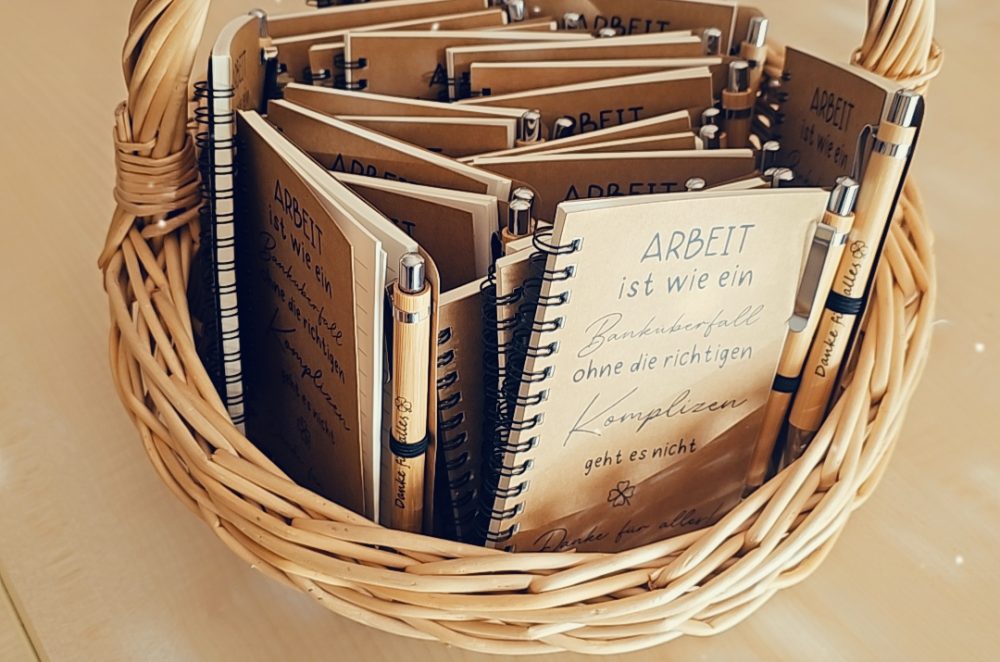 ARBEIT
ARBEIT
ARBEIT
ARBEIT
ARBEIT
ARBEIT
ist wie ein
Banküberfall
ohne die richtigen
Komplizen
geht es nicht
ARBEIT
ist wie ein
Banküberfall
ohne die richtigen
Komplizen
geht es nicht
Danke für alles
Danke für alles
Danke für alles